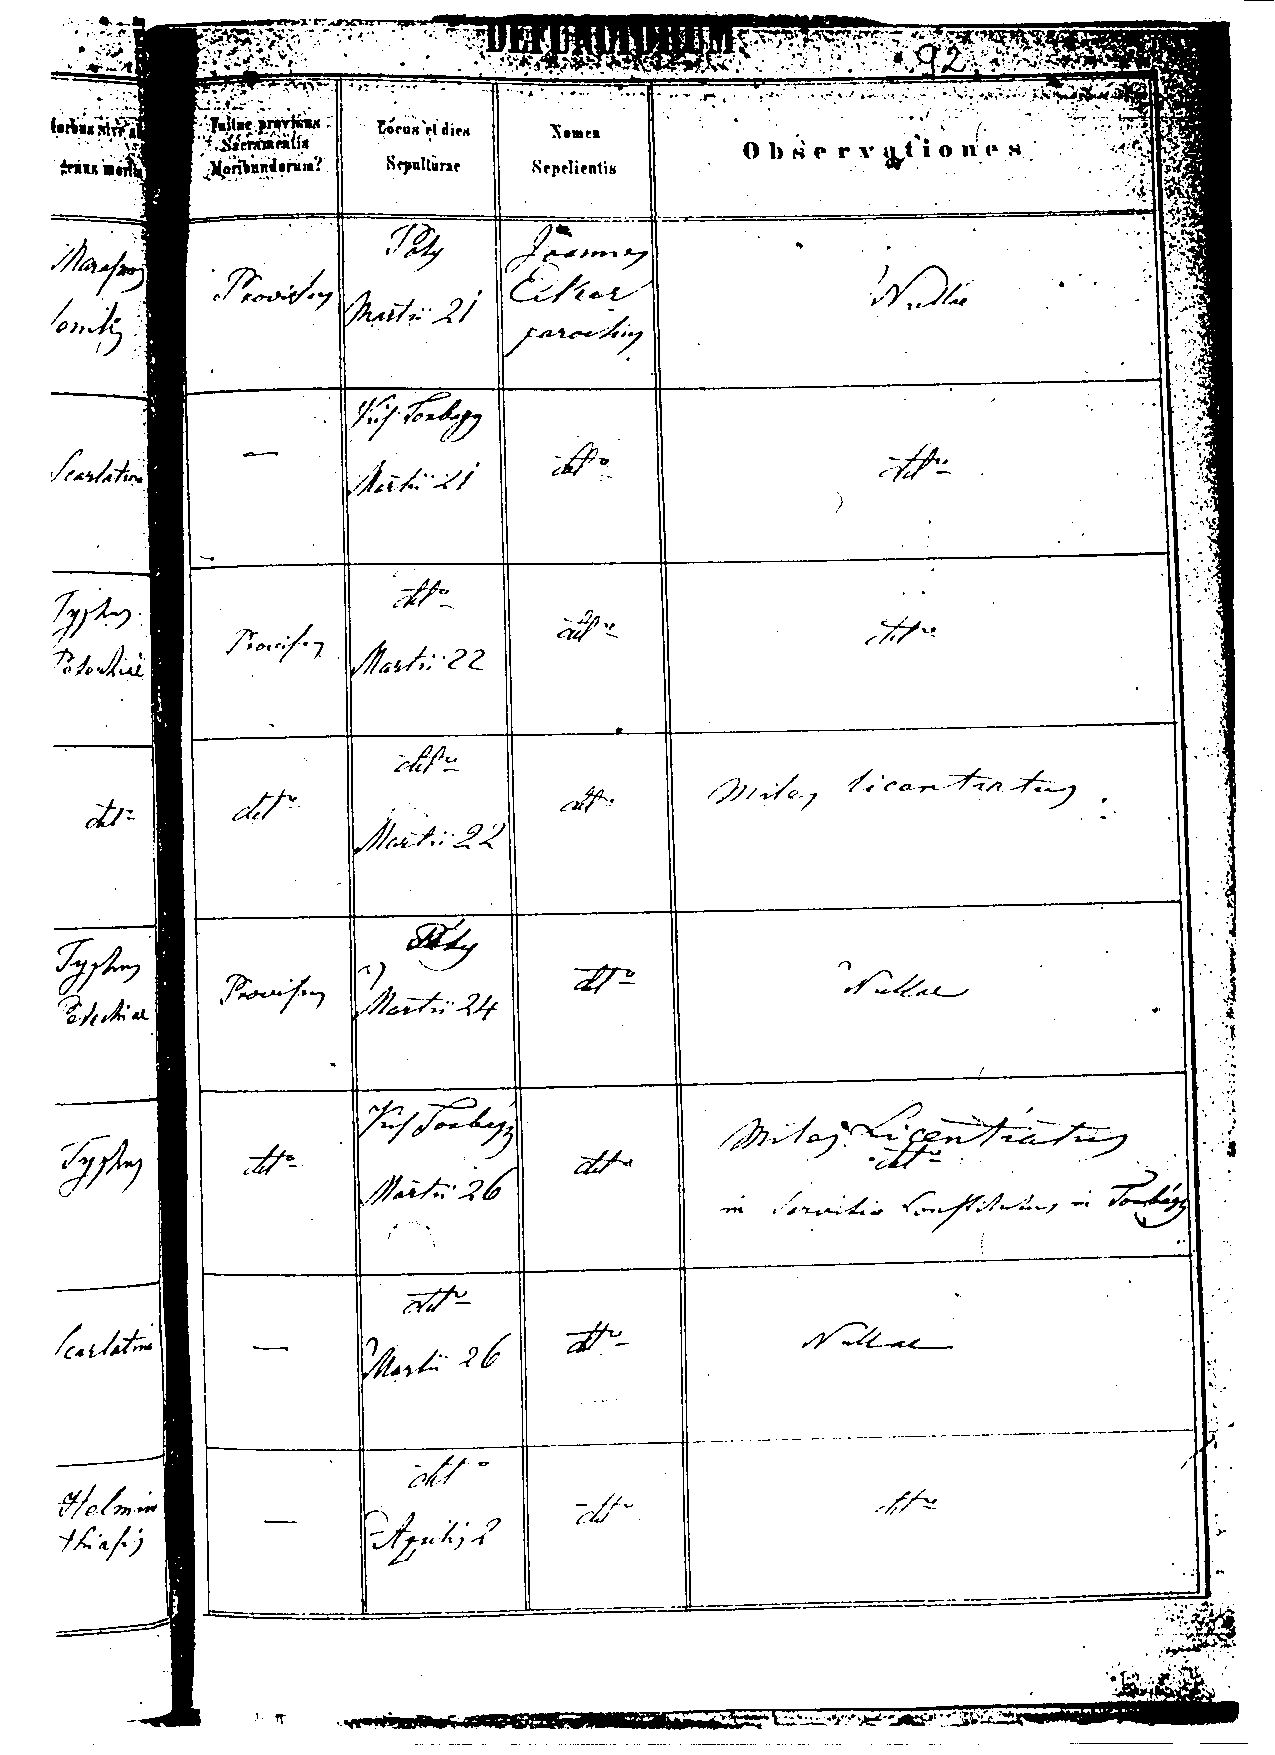 DEFUNCTORUM
92
Morbus sive al
genus mortis
Fuitne provisus
Sacramentis
Moribundorum?
Locus et dies
Sepulturae
Nomen
Sepelientis
Observationes
Marasmus
senilis
Provisus
Páty
Martii 21
Joannes
Eiker
parochus
Nullae
Scarlatina
—
Kis Torbágy
Martii 21
detto
detto
Typhus
Petechiae
Provisus
detto
Martii 22
detto
detto
detto
detto
detto
Martii 22
detto
Miles licentiatus
Typhus
Petechiae
Provisus
Páty
Martii 24
detto
Nullae
Typhus
detto
Kis Torbágy
Martii 26
detto
Miles Licentiatus
detto
in servitio constitutus in Torbágy
Scarlatina
—
detto
Martii 26
detto
Nullae
Helmin
thiasis
—
detto
Aprilis 2
detto
detto